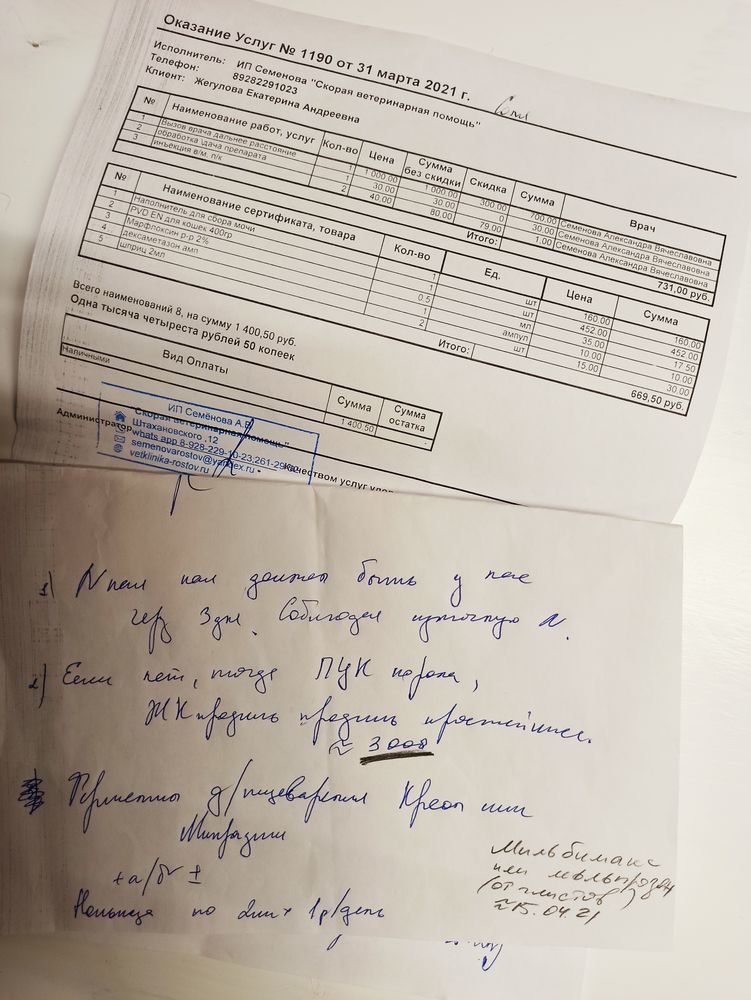 Оказание Услуг № 1190 от 31 марта 2021 г.
Исполнитель: ИП Семенова "Скорая ветеринарная помощь"
Телефон: 89282291023
Клиент: Жегулова Екатерина Андреевна
№ Наименование работ, услуг Кол-во Цена Сумма без скидки Скидка Сумма Врач
1 Вызов врача дальнее расстояние 1 1 000.00 1 000.00 300.00 700.00 Семенова Александра Вячеславовна
2 обработка \дача препарата 1 30.00 30.00 0 30.00 Семенова Александра Вячеславовна
3 инъекция в/м. п/к 2 40.00 80.00 79.00 1.00 Семенова Александра Вячеславовна
Итого: 731,00 руб.
№ Наименование сертификата, товара Кол-во Ед. Цена Сумма
1 Наполнитель для сбора мочи 1 шт 160.00 160.00
2 PVD EN для кошек 400гр 1 шт 452.00 452.00
3 Марфлоксин р-р 2% 0.5 мл 35.00 17.50
4 дексаметазон амп 1 ампул 10.00 10.00
5 шприц 2мл 2 шт 15.00 30.00
Итого: 669,50 руб.
Всего наименований 8, на сумму 1 400,50 руб.
Одна тысяча четыреста рублей 50 копеек
Вид Оплаты Сумма Сумма остатка
Наличными 1 400.50
ИП Семёнова А.В.
"Скорая ветеринарная помощь"
Штахановского ,12
whats app 8-928-229-10-23;261-29
semenovarostov@yandex.ru
vetklinika-rostov.ru
Администратор
качеством услуг
1) кал должен быть у нас
3 дня. Соблюдая суточную N.
2) Если нет, тогда ПЦР кала,
простейшие.
≈ 3000
Ферменты д/пищеварения Креон или
Микразим
+ а/б ±
по 1 р/день
Мильбимакс
или
(от глистов)
≈15.04.21